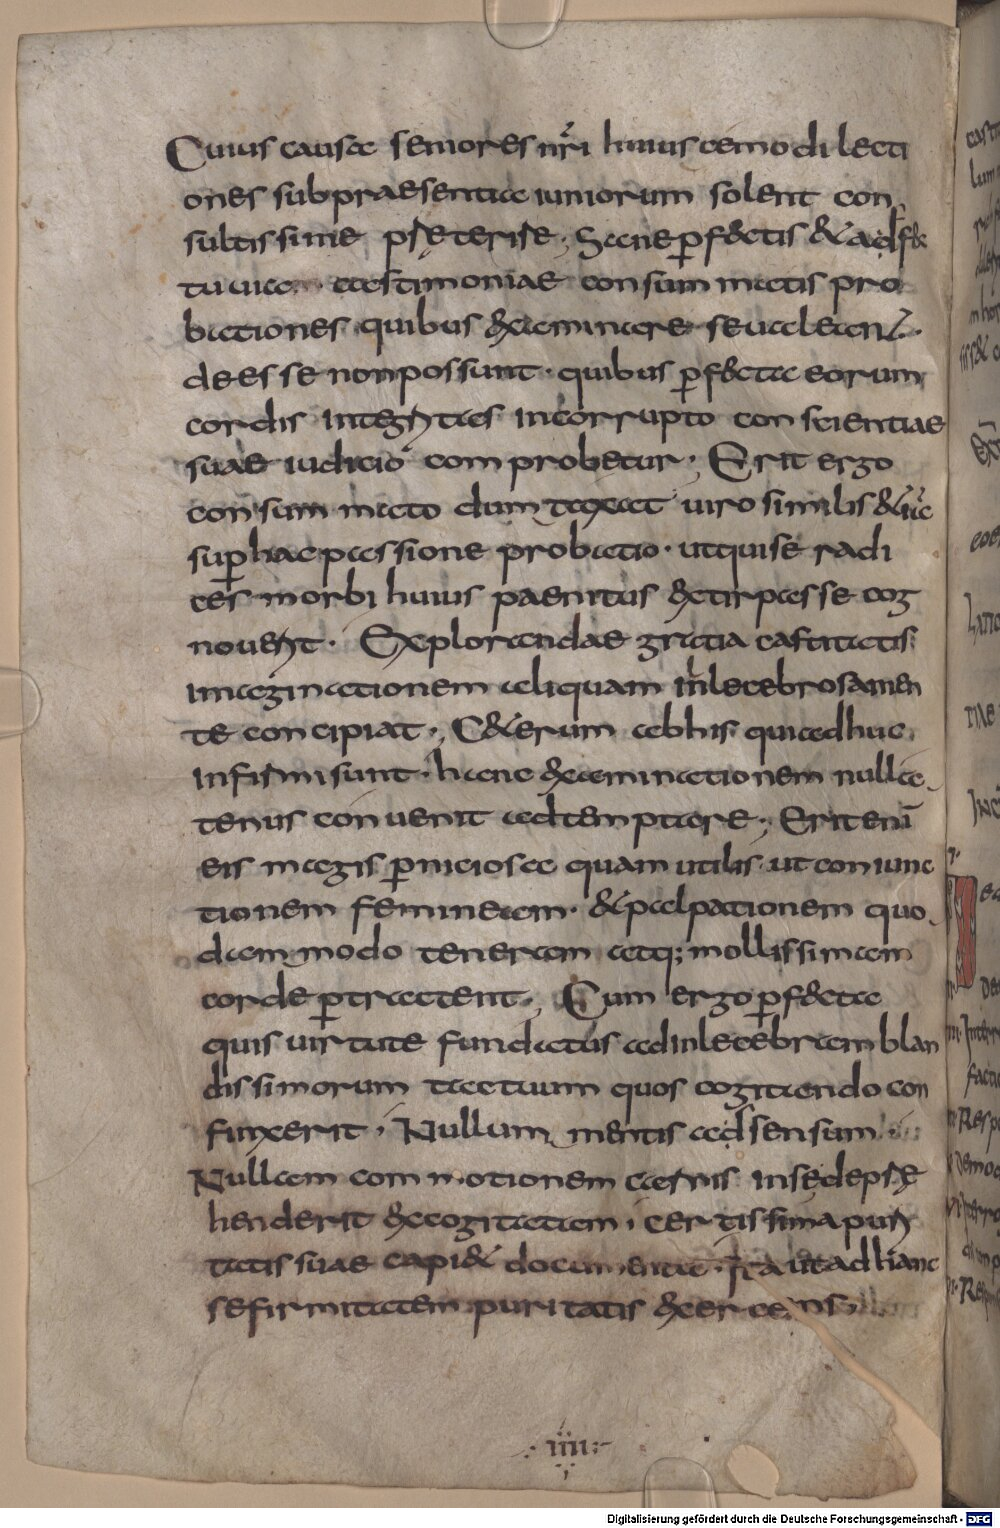 Cuius causae seniores nr̄i huiuscemodi lecti
ones subpraesentia iuniorum solent con
sultissime pręterire; Sane ꝑf&ctis &adfe
testimoniae consummatis pro
bationes quibus &xaminare seualeant
deesse nonpossunt· quibus ꝑf&cta eorum
cordis integritas incorrupto conscientiae
suae iudicio comprobetur· Erit ergo
consummato dumtaxat uiro similis &iā
suꝑ hac passione probatio· utquise radi
ces morbi huius paenitus &xtirpasse cog
nouerit· Explorandae gratia castitatis
imaginationem aliquam inlecebrosa men
te concipiat; C&erum abhis quiadhuc
infirmi sunt· hanc &xaminationem nulla
tenus conuenit adtemptare; Erit eni
eis magis ꝑniciosa quam utilis ut coniunc
tionem femineam· &palpationem quo
dammodo teneram atq; mollissimam
corde ꝑtractent; Cum ergo ꝑf&cta
quis uirtute fundatus adinlecebram blan
dissimorum tactuum quos cogitando con
finxerit· Nullum mentis adsensum
Nullam commotionem carnis insedepre
henderit &xcogitatam· certissima puri
tatis suae capi& documenta· Ita utad hanc
sefirmitatem puritatis &xercens
·:iiii:·